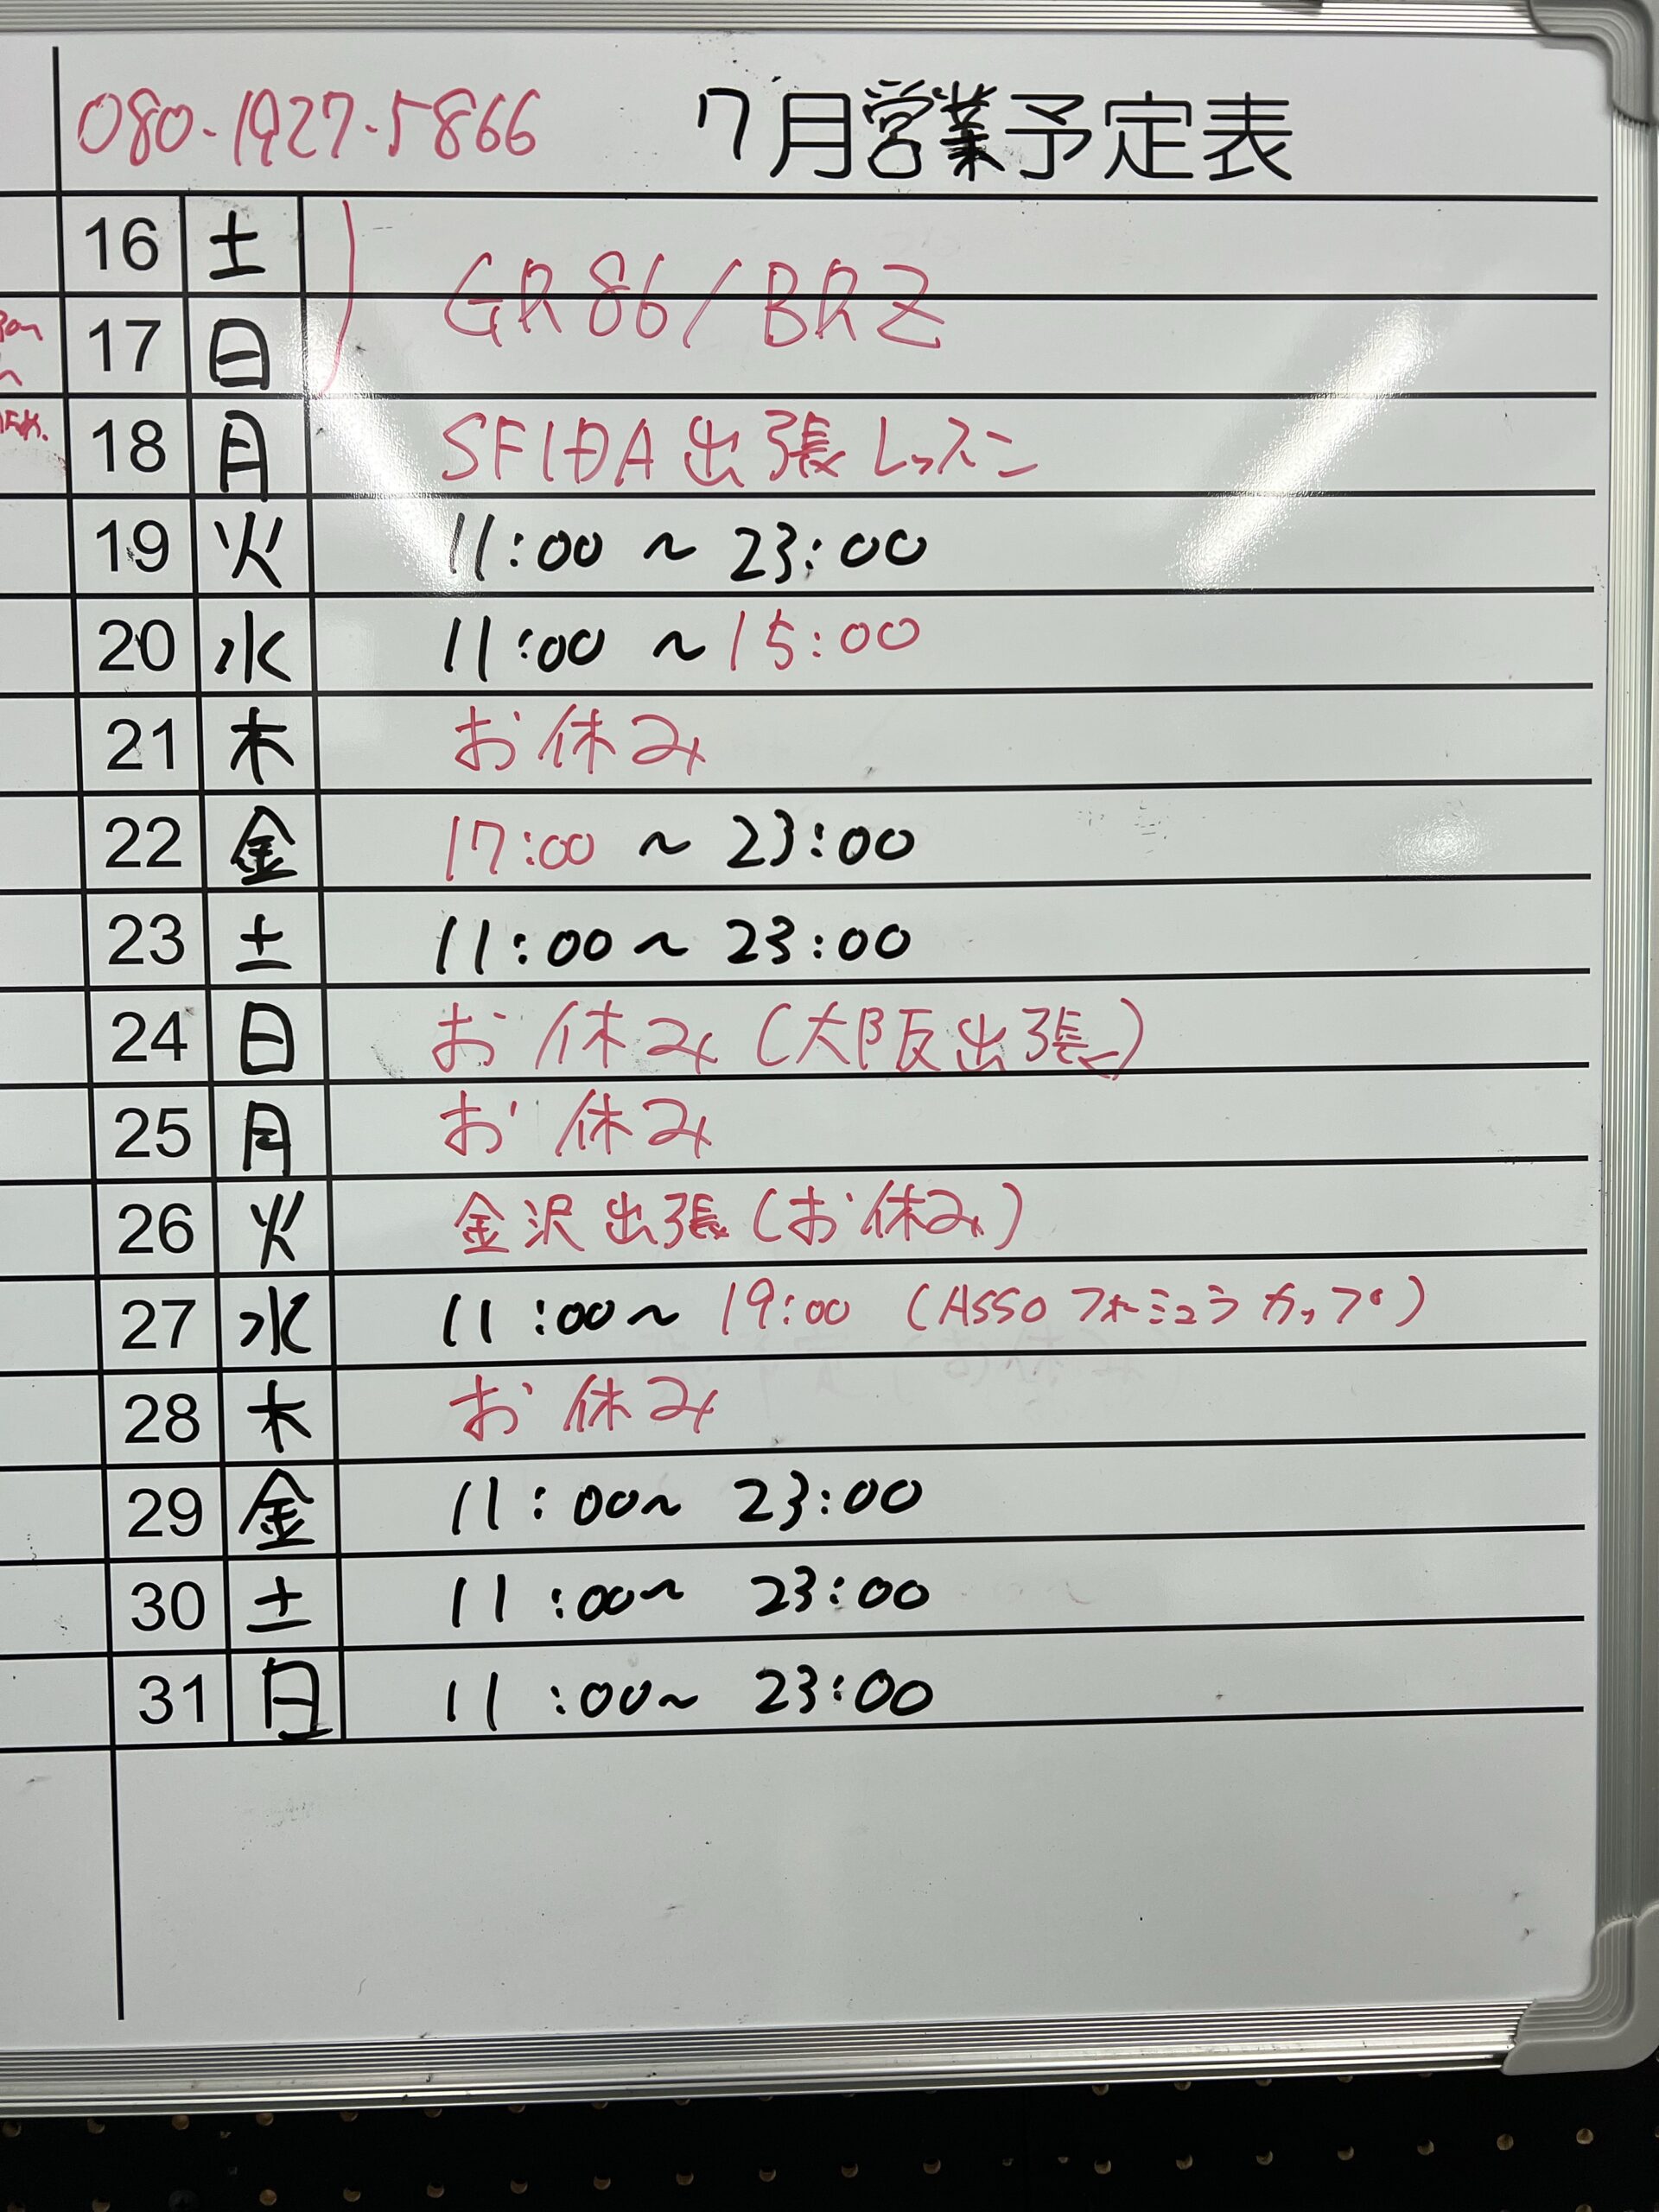 080-1927-5866 7月営業予定表
16 土
GR86/BRZ
17 日
18 月 SFIDA出張レッスン
19 火 11:00 ~ 23:00
20 水 11:00 ~ 15:00
21 木 お休み
22 金 17:00 ~ 23:00
23 土 11:00 ~ 23:00
24 日 お休み(大阪出張)
25 月 お休み
26 火 金沢出張(お休み)
27 水 11:00~ 19:00 (ASSOフォーミュラカップ)
28 木 お休み
29 金 11:00~ 23:00
30 土 11:00~ 23:00
31 日 11:00~ 23:00